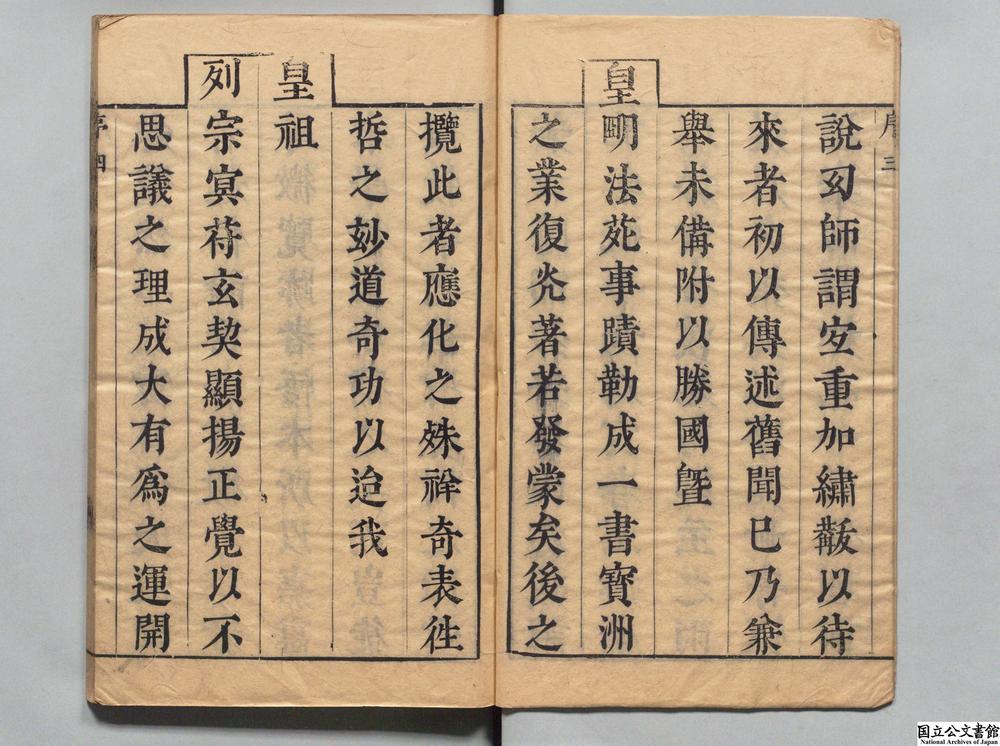 序三
說幻師謂宜重加繡黻以待
來者初以傳述舊聞已乃兼
舉未備附以勝國曁
皇明法苑事蹟勒成一書寶洲
之業復炎著若發蒙矣後之
攬此者應化之姝祥奇表徃
哲之玅道奇功以迨我
皇祖
列宗冥苻玄契顯揚正覺以不
思議之理成大有爲之運開
序四
国立公文書館
National Archives of Japan